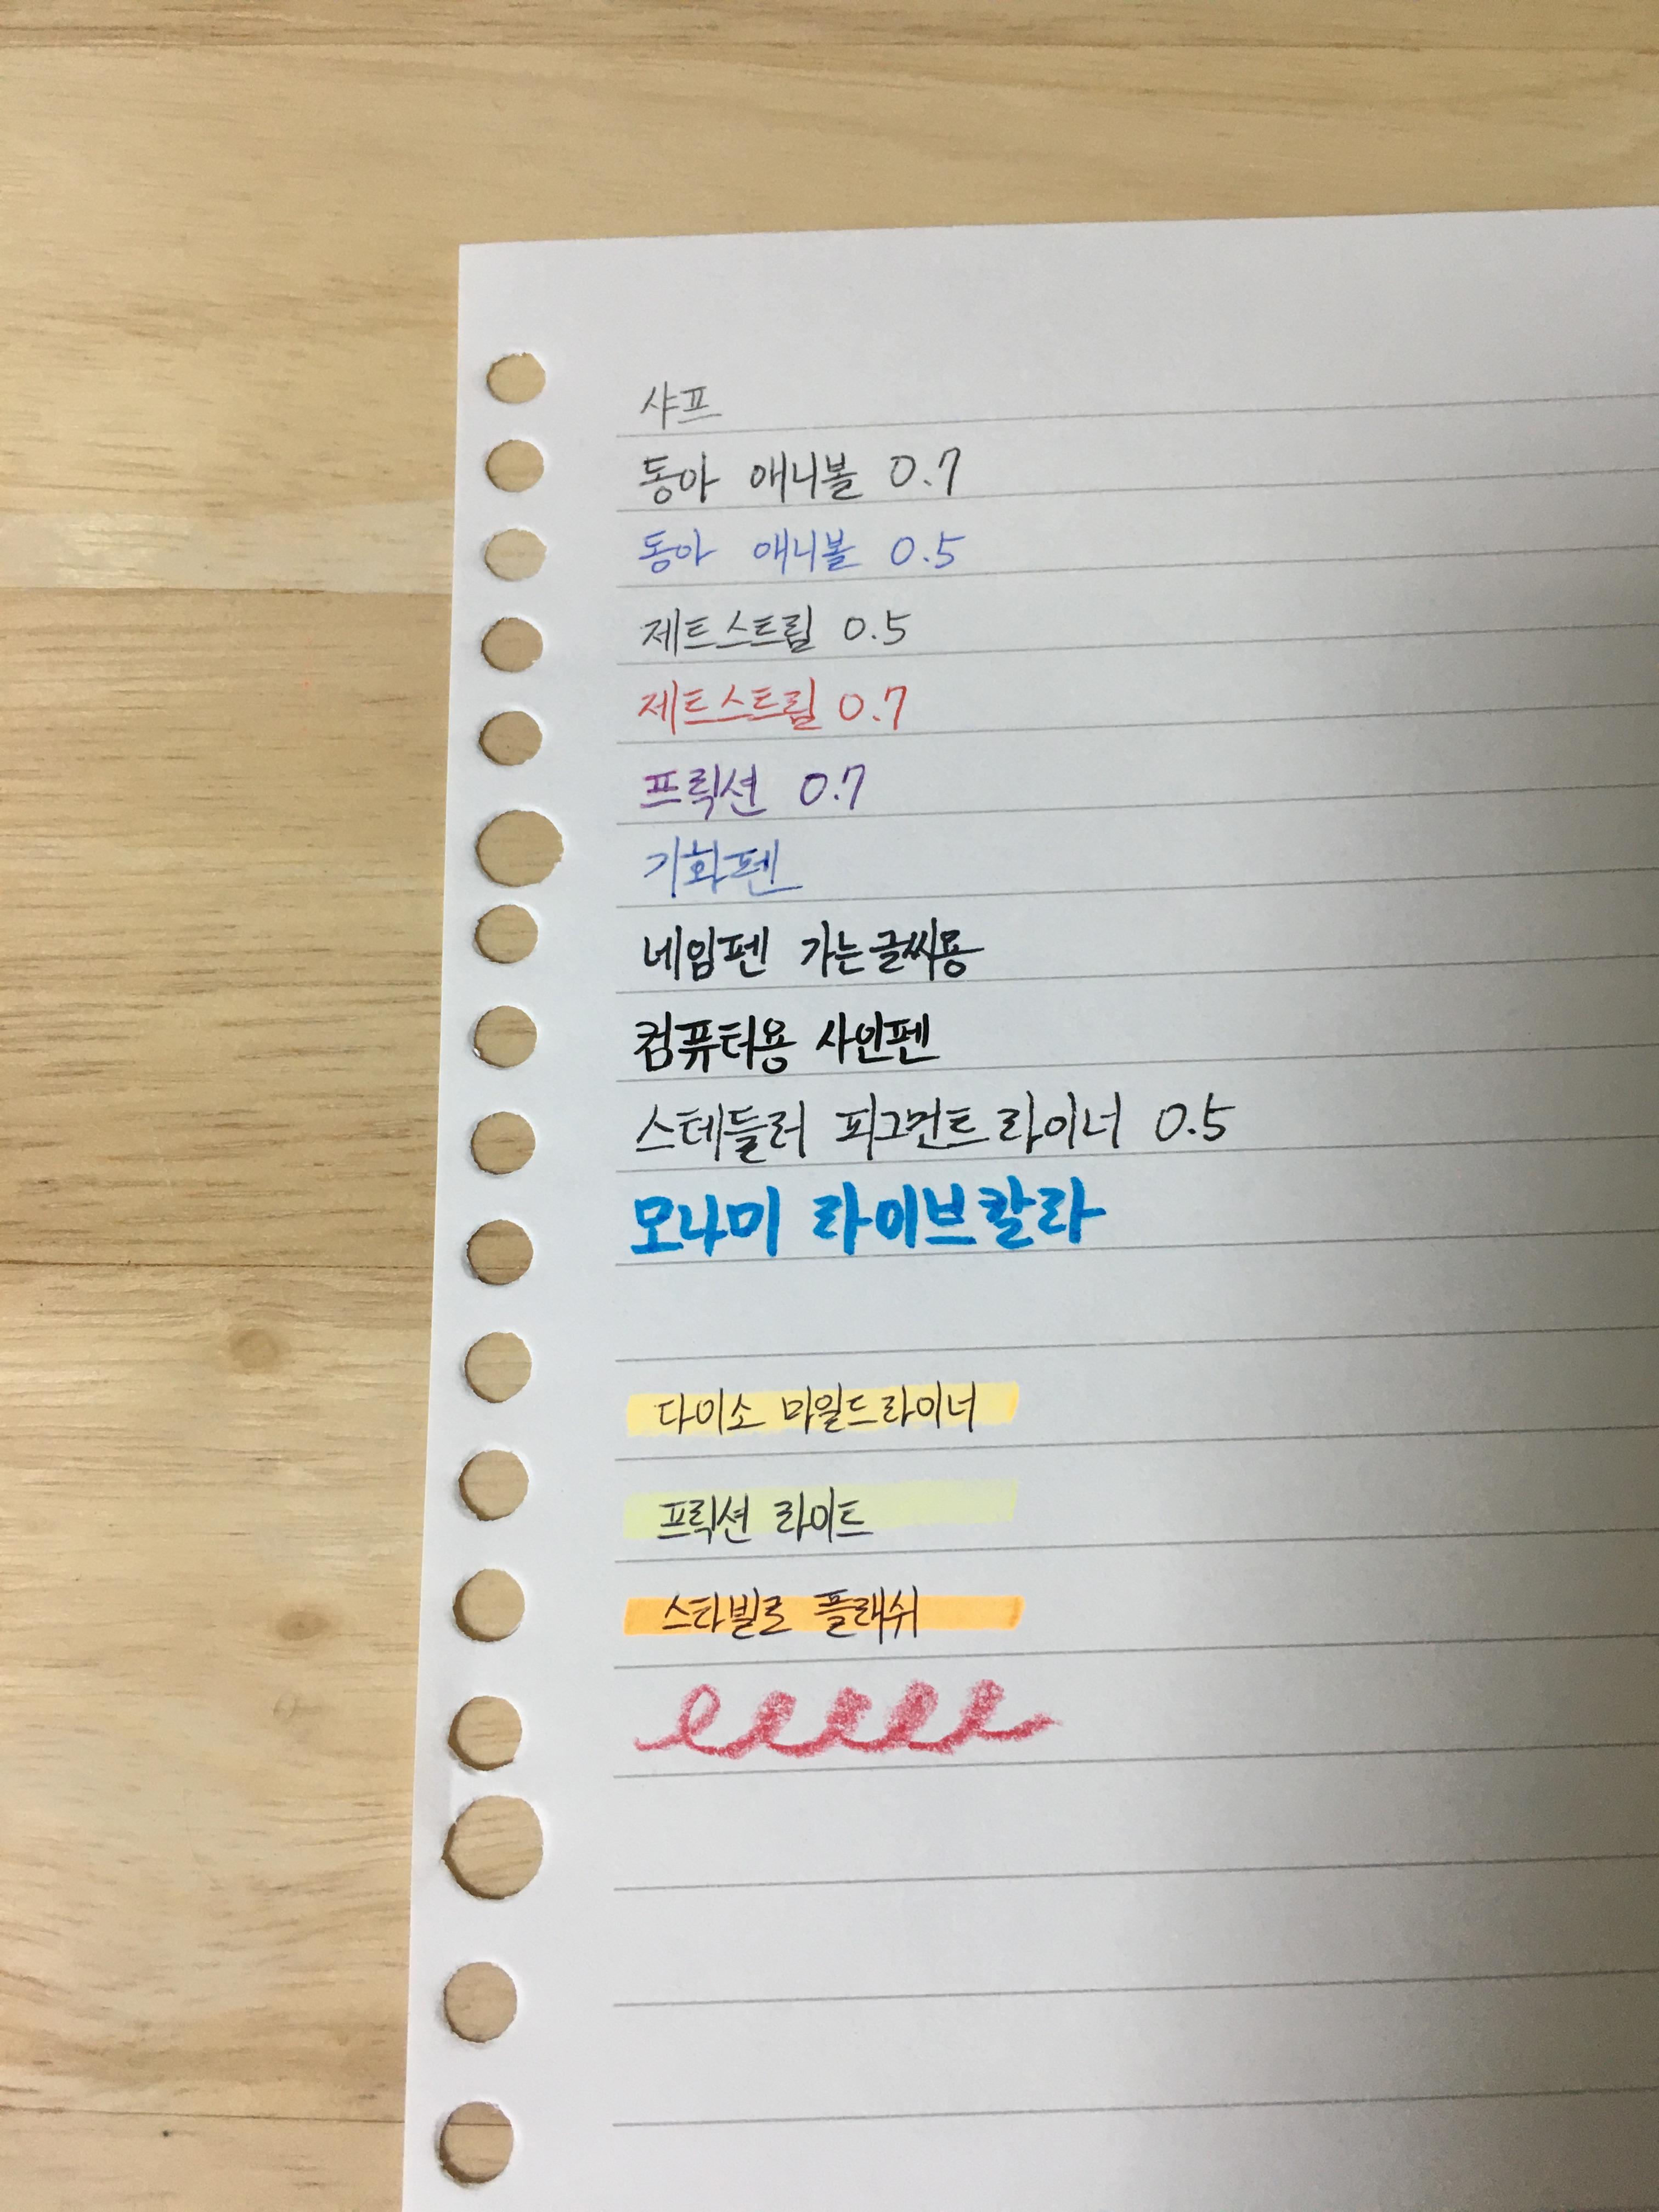 샤프
동아 애니볼 0.7
동아 애니볼 0.5
제트스트림 0.5
제트스트림 0.7
프릭션 0.7
기화펜
네임펜 가는글씨용
컴퓨터용 사인펜
스테들러 피그먼트라이너 0.5
모나미 라이브칼라
다이소 마일드라이너
프릭션 라이트
스타빌로 플래쉬